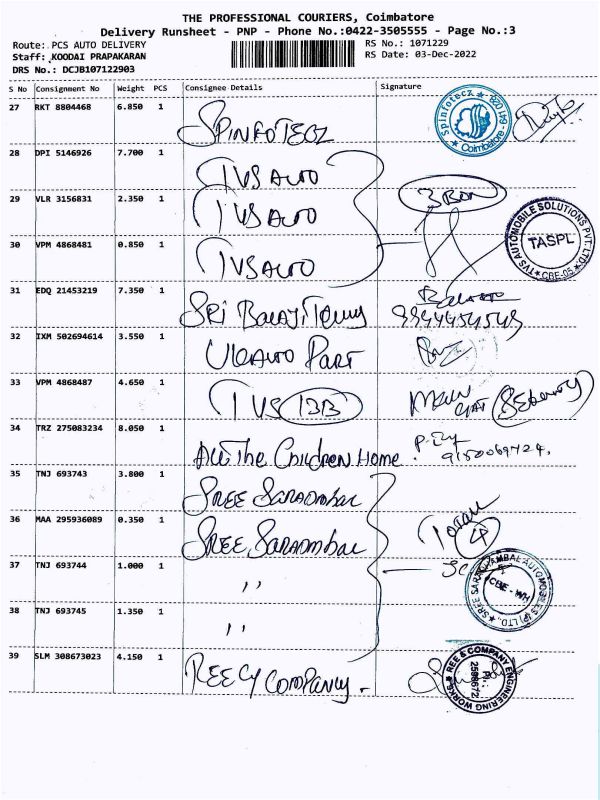 THE PROFESSIONAL COURIERS, Coimbatore
Delivery Runsheet - PNP - Phone No.:0422-3505555 - Page No.:3
Route: PCS AUTO DELIVERY RS No.: 1071229
Staff: KOODAI PRAPAKARAN RS Date: 03-Dec-2022
DRS No.: DCJB107122903
S No Consignment No Weight PCS Consignee Details Signature
27 RKT 8804468 6.850 1 SPINFOTECZ
Spinfotecz Coimbatore
28 DPI 5146926 7.700 1 TVS AUTO
29 VLR 3156831 2.350 1 TVS AUTO 3 Box
30 VPM 4868481 0.850 1 TVS AUTO
TVS AUTOMOBILE SOLUTIONS PVT. LTD. TASPL CBE-05
31 EDQ 21453219 7.350 1 SRI
32 IXM 502694614 3.550 1 AUTO PART
33 VPM 4868487 4.650 1 TVS
34 TRZ 275083234 8.050 1 The Children Home
35 TNJ 693743 3.800 1 SREE Saradmbal
36 MAA 295936089 0.350 1 SREE Saradmbal Total 4
37 TNJ 693744 1.000 1 ,,
SREE SARADHAMBAL AUTOMOBILES (P) LTD., CBE-WH
38 TNJ 693745 1.350 1 ,,
39 SLM 308673023 4.150 1 REE CY COMPANY
REE & COMPANY ENGINEERING WORKS Ph.: 2598672